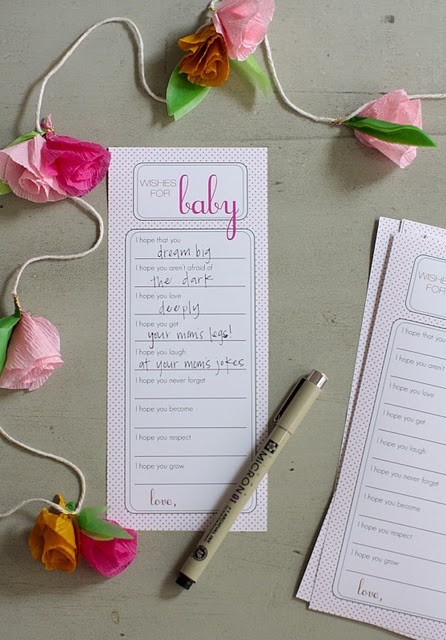 WISHES
FOR baby
I hope that you
dream big
I hope you aren't afraid of
the dark
I hope you love
deeply
I hope you get
your mom's legs!
I hope you laugh
at your mom's jokes
I hope you never forget
I hope you become
I hope you respect
I hope you grow
love,
MICRON 05
WISHES
FOR
I hope that you
I hope you aren't
I hope you love
I hope you get
I hope you laugh
I hope you never forget
I hope you become
I hope you respect
I hope you grow
love,